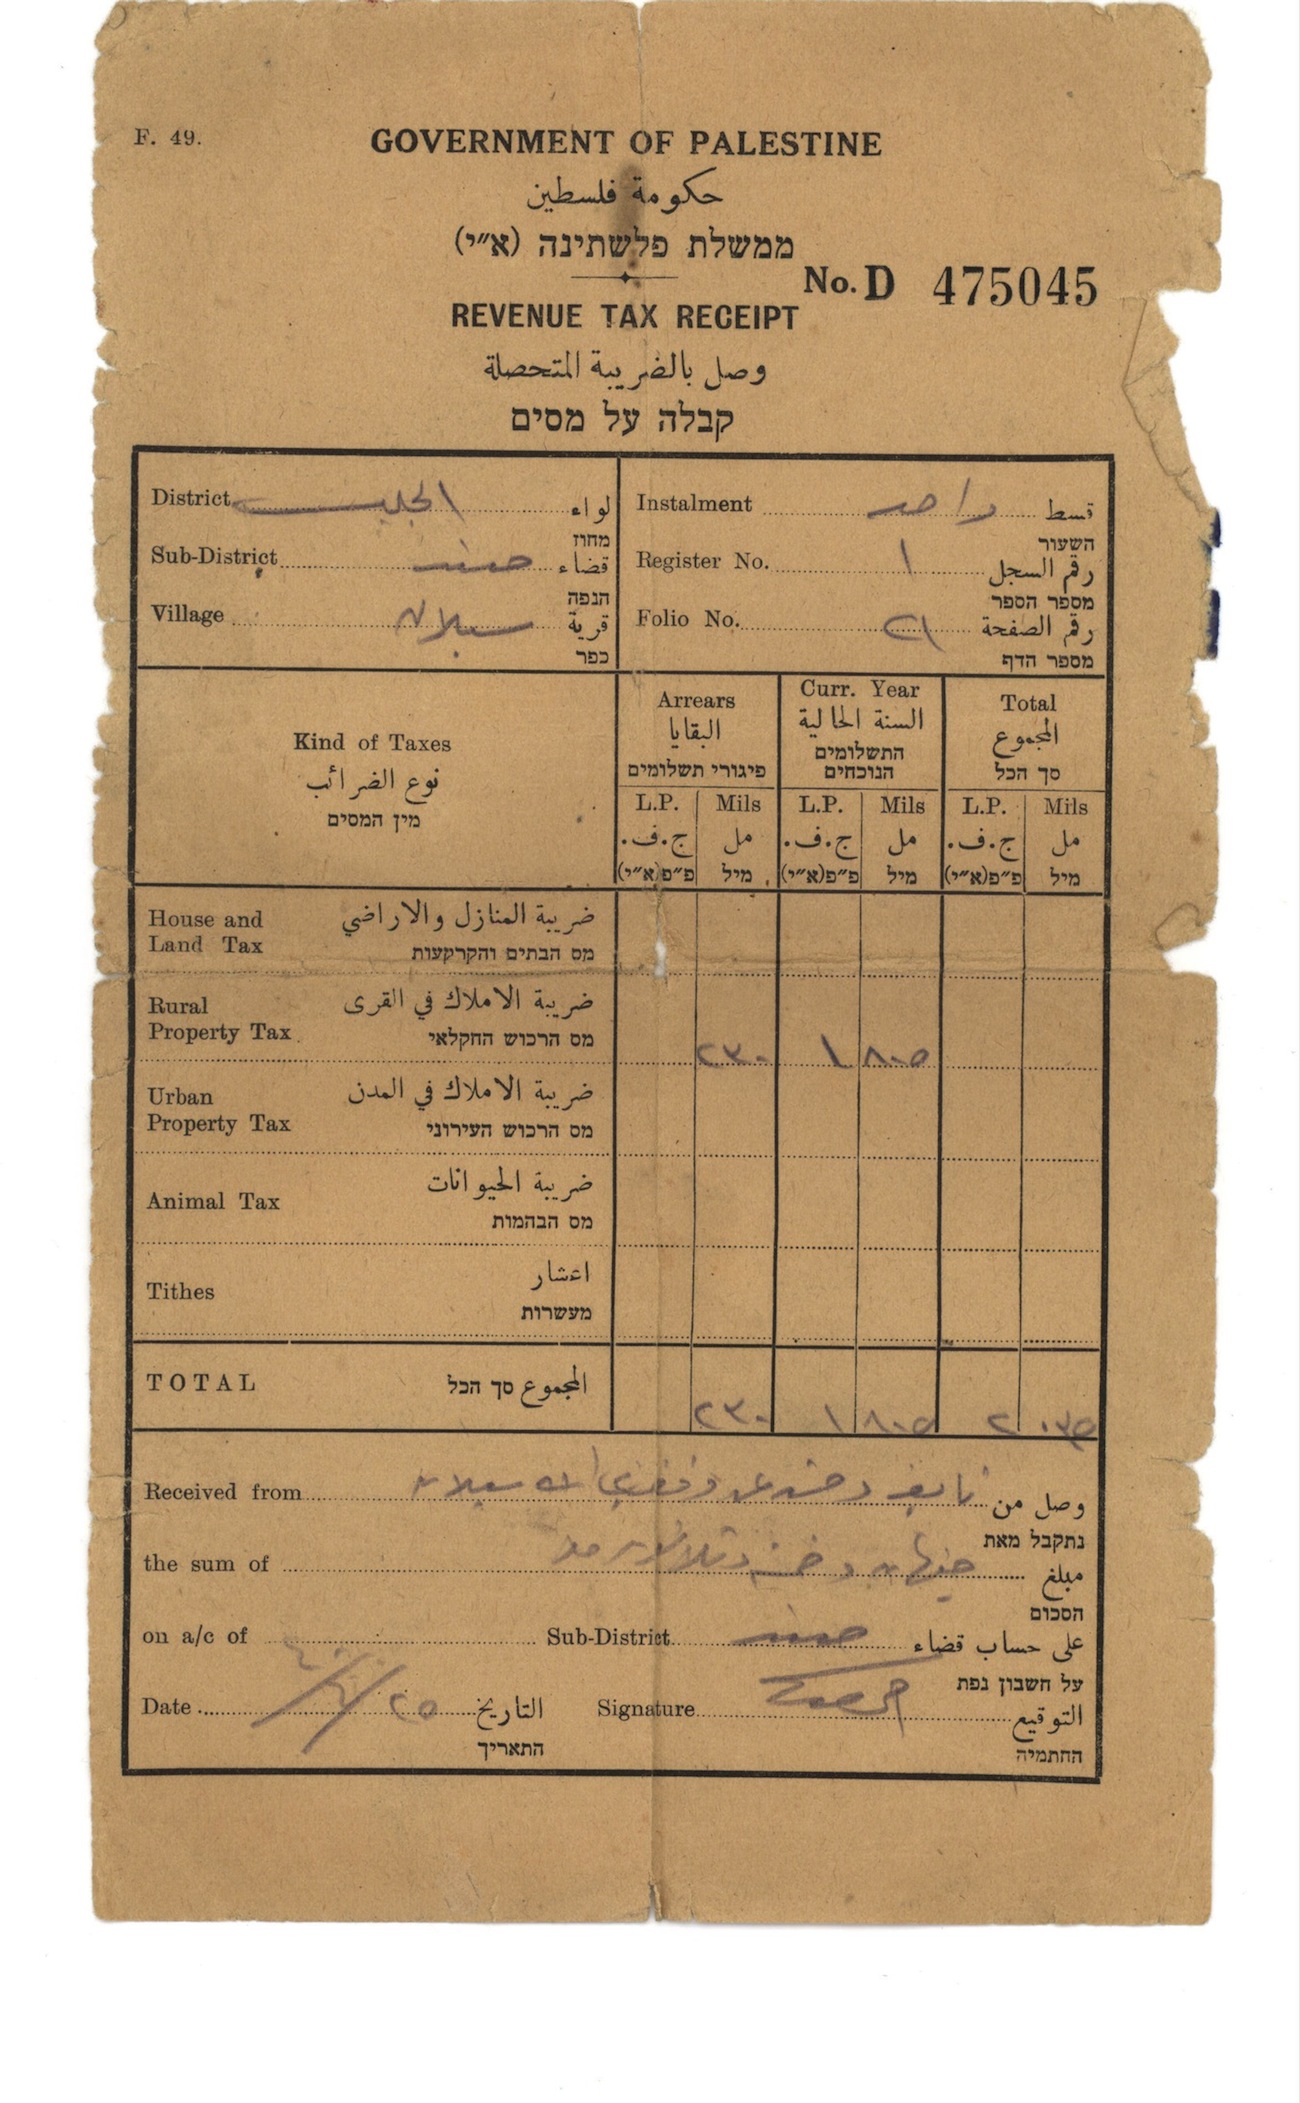 F. 49.
GOVERNMENT OF PALESTINE
حكومة فلسطين
ממשלת פלשתינה (א״י)
No. D 475045
REVENUE TAX RECEIPT
وصل بالضريبة المتحصلة
קבלה על מסים
District الجليل لواء
מחוז
Sub-District صفد قضاء
הנפה
Village سبلان قرية
כפר
Instalment واحد قسط
השעור
Register No. ١ رقم السجل
מספר הספר
Folio No. رقم الصفحة
מספר הדף
Kind of Taxes
نوع الضرائب
מין המסים
Arrears
البقايا
פיגורי תשלומים
Curr. Year
السنة الحالية
התשלומים
הנוכחים
Total
المجموع
סך הכל
L.P. Mils L.P. Mils L.P. Mils
ج.ف. مل ج.ف. مل ج.ف. مل
פ״פ(א״י) מיל פ״פ(א״י) מיל פ״פ(א״י) מיל
House and ضريبة المنازل والاراضي
Land Tax מס הבתים והקרקעות
Rural ضريبة الاملاك في القرى
Property Tax מס הרכוש החקלאי
٢٣٠ ١ ٨٠٥
Urban ضريبة الاملاك في المدن
Property Tax מס הרכוש העירוני
Animal Tax ضريبة الحيوانات
מס הבהמות
Tithes اعشار
מעשרות
TOTAL المجموع סך הכל
٢٣٠ ١ ٨٠٥ ٢ ٠٣٥
Received from نايف سبلان وصل من
נתקבל מאת
the sum of جنيهان وخمسة وثلاثون مل مبلغ
הסכום
on a/c of Sub-District صفد على حساب قضاء
על חשבון נפת
Date ٢٥ التاريخ
התאריך
Signature التوقيع
החתמיה